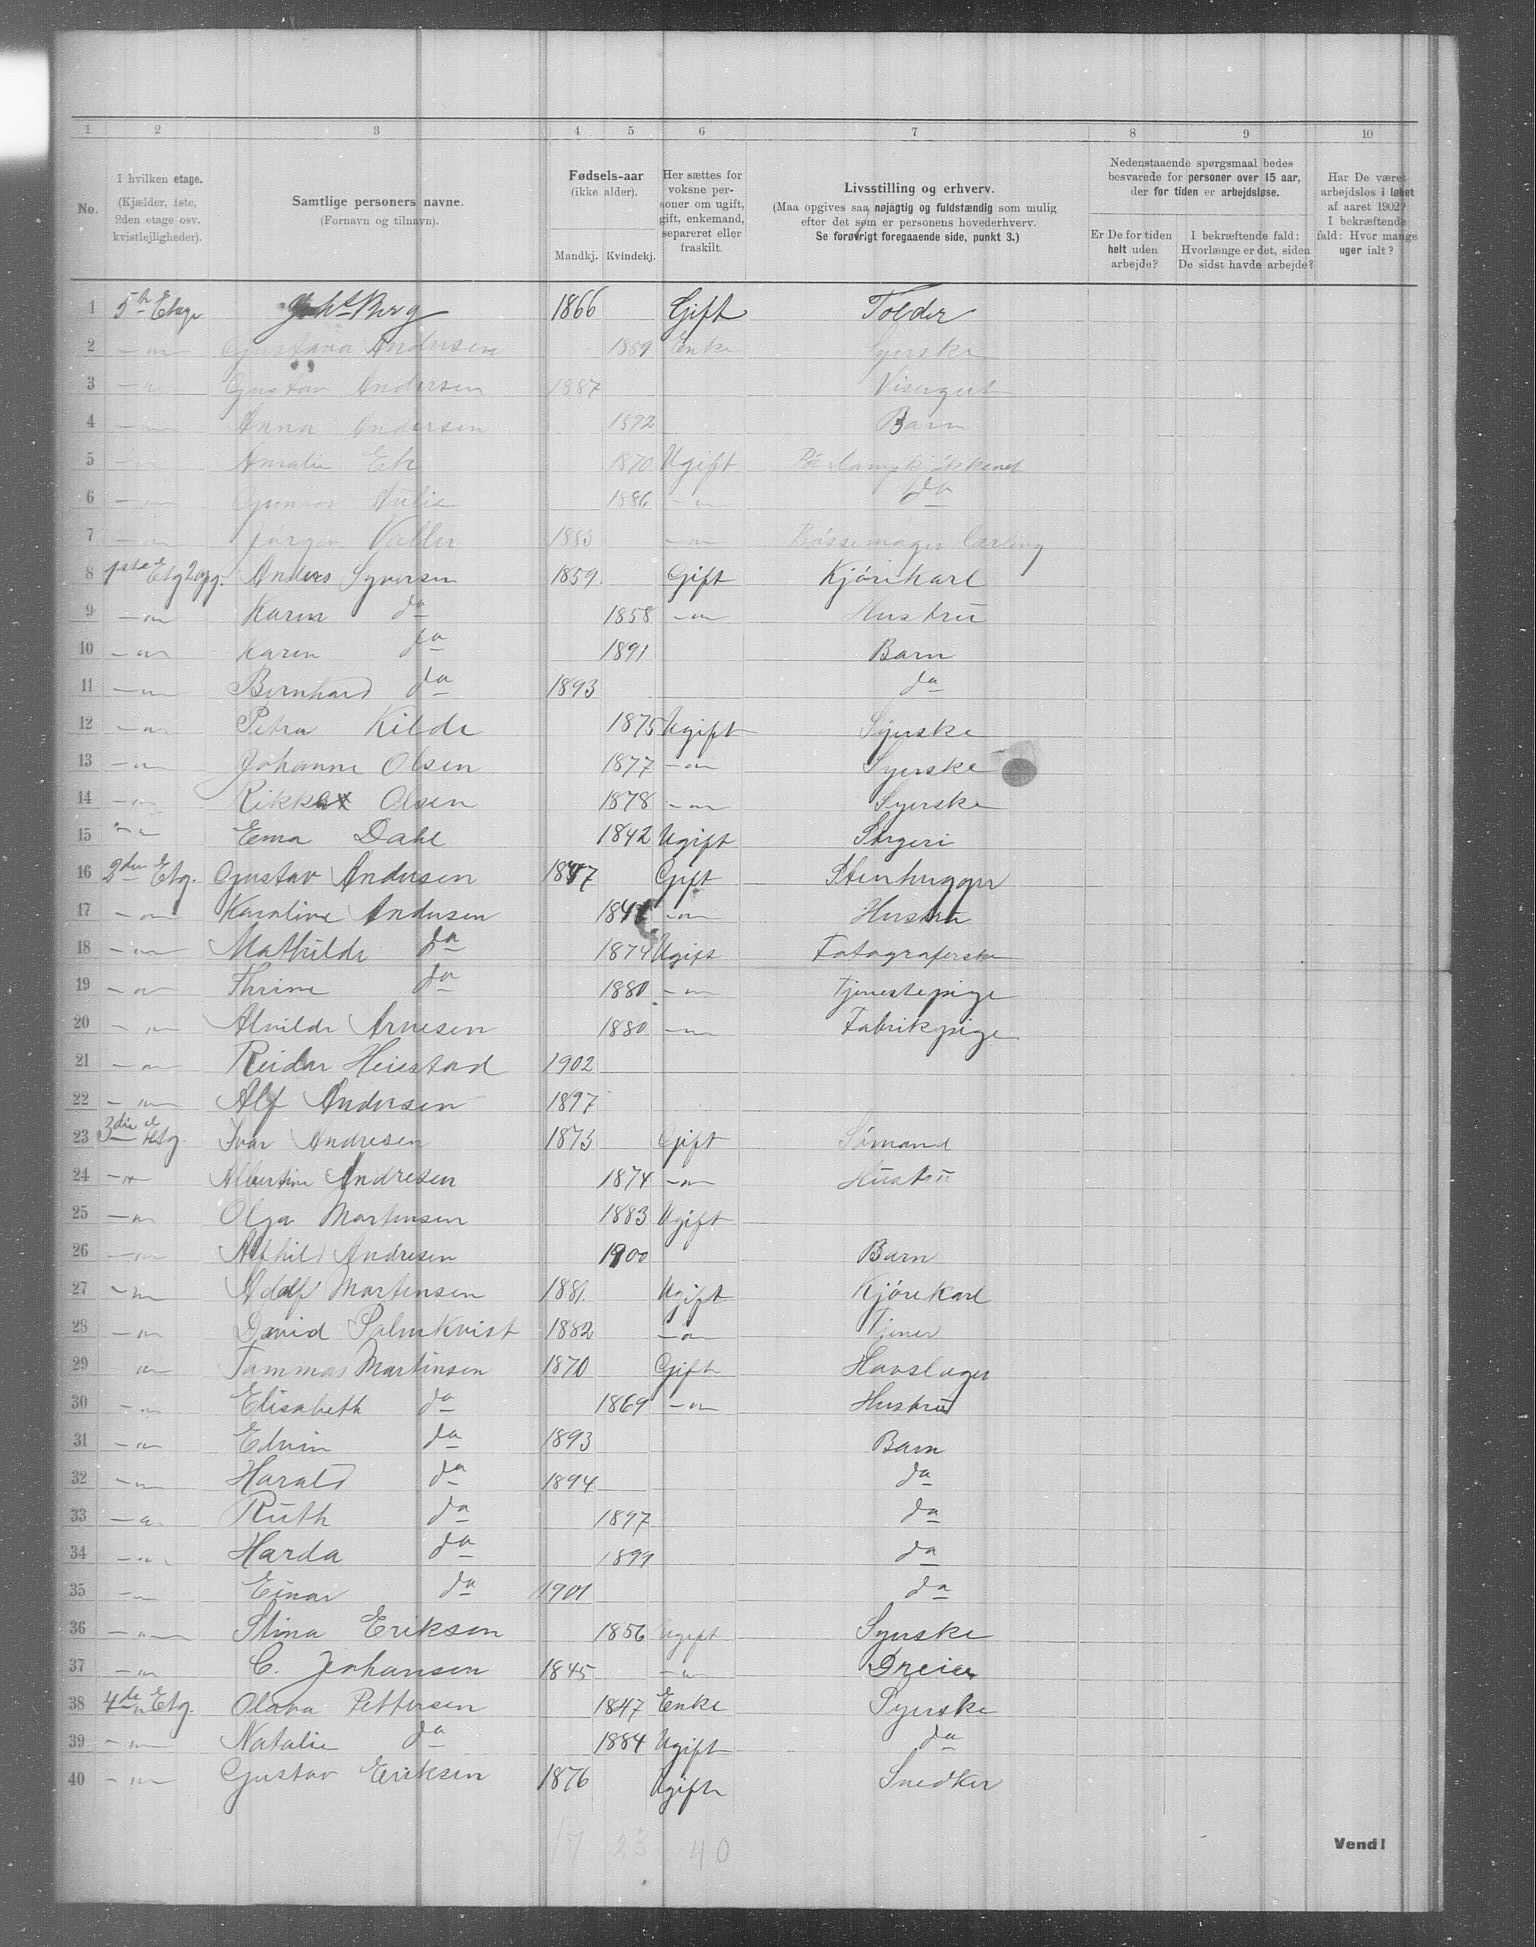 1 2 3 4 5 6 7 8 9 10
No.
I hvilken etage. (Kjælder, 1ste, 2den etage osv. kvistlejligheder).
Samtlige personers navne. (Fornavn og tilnavn).
Fødsels-aar (ikke alder).
Mandkj. Kvindekj.
Her sættes for voksne personer om ugift, gift, enkemand, separeret eller fraskilt.
Livsstilling og erhverv.
(Maa opgives saa nøjagtig og fuldstændig som mulig efter det som er personens hovederhverv.
Se forøvrigt foregaaende side, punkt 3.)
Nedenstaaende spørgsmaal bedes besvarede for personer over 15 aar, der for tiden er arbejdsløse.
Er De for tiden helt uden arbejde?
I bekræftende fald: Hvorlænge er det, siden De sidst havde arbejde?
Har De været arbejdsløs i løbet af aaret 1902? I bekræftende fald: Hvor mange uger ialt?
1 5te Etage Berg 1866 Gift Tolder
2 Gustava Andersen 1859 Enke Syerske
3 Gustav Andersen 1887 Visergut
4 Anna Andersen 1892 Barn
5 Amalie Ek 1870 Ugift
6 Gunvor Julie 1886 — " — do
7 Jørgen 1883 — " — Bøssemager Lærling
8 1ste Etg 2 opg. Anders Syversen 1859 Gift Kjørekarl
9 — " — Karen do 1858 — " — Hustru
10 — " — Karen do 1891 Barn
11 — " — Bernhard do 1893 do
12 — " — Petra Kilde 1875 Ugift Syerske
13 — " — Johanne Olsen 1877 — " — Syerske
14 — " — Rikka Olsen 1878 — " — Syerske
15 — " — Ema Dahl 1842 Ugift
16 2den Etg. Gustav Andersen 1847 Gift Stenhugger
17 — " — Karoline Andersen — " — Hustru
18 — " — Mathilde do 1874 Ugift Fotograferske
19 — " — Thrine do 1880 — " — Tjenestepige
20 — " — Alvilde Arnesen 1880 — " — Fabrikpige
21 — " — Reidar Heiestad 1902
22 — " — Alf Andersen 1897
23 3die Etg. Ivar Andresen 1873 Gift Sømand
24 — " — Albertine Andresen 1874 — " — Hustru
25 — " — Olga Martinsen 1883 Ugift
26 — " — Andresen 1900 Barn
27 — " — Adolf Martinsen 1881 Ugift Kjørekarl
28 — " — David Palmkvist 1882 — " — Tjener
29 " Tommas Martinsen 1870 Gift Hovslager
30 — " — Elisabeth do 1869 — " — Hustru
31 — " — Edvin do 1893 Barn
32 — " — Harald do 1894 do
33 — " — Ruth do 1897 do
34 — " — Harda do 1899 do
35 — " — Einar do 1901 do
36 — " — Stina Eriksen 1856 Ugift Syerske
37 — " — C. Johansen 1845 — " — Dreier
38 4de Etg. Olava Pettersen 1847 Enke Syerske
39 — " — Natalie do 1884 Ugift do
40 — " — Gustav Eriksen 1876 Ugift Snedker
17 23 40
Vend!